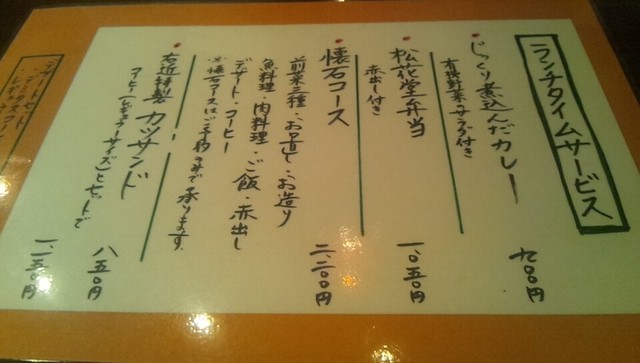 ランチタイムサービス
じっくり煮込んだカレー 九〇〇円
有機野菜のサラダ付き
松花堂弁当 一、〇五〇円
赤出し付き
懐石コース 二、二〇〇円
前菜三種・お造り
魚料理・肉料理・ご飯・赤出し
デザート・コーヒー
※懐石コースはご予約のみで承ります。
右近特製 カツサンド 八五〇円
コーヒー(レギュラーサイズ)とセットで 一、一五〇円
デザートセット